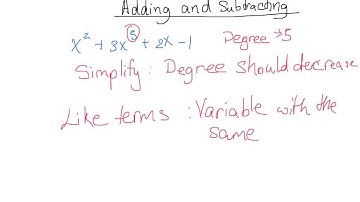 Adding and Subtracting
x² + 3x⁵ + 2x - 1 Degree → 5
Simplify : Degree should decrease
Like terms : Variable with the
same